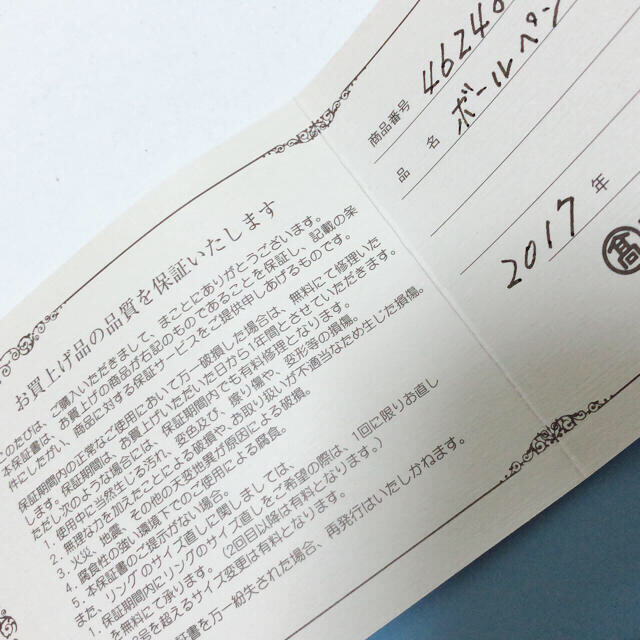 お買上げ品の品質を保証いたします
このたびは、ご購入いただきまして、まことにありがとうございます。
本保証書は、お買上げの商品が右記のものであることを保証し、記載の条
件にしたがい、商品に対する保証サービスをご提供申しあげるものです。
保証期間内の正常なご使用において万一破損した場合は、無料にて修理いた
します。保証期間は、お買上げいただいた日から1年間とさせていただきます。
ただし次のような場合には、保証期間内でも有料修理となります。
1. 使用中に当然生じる汚れ、変色及び、磨り傷や、変形等の損傷。
2. 無理な力を加えたことによる破損や、お取り扱いが不適当なため生じた損傷。
3. 火災、地震、その他の天変地異が原因による破損。
4. 腐食性の強い環境下でのご使用による腐食。
5. 本保証書のご提示がない場合。
また、リングのサイズ直しに関しましては、
1. 保証期間内にリングのサイズ直しをご希望の際は、1回に限りお直し
を無料にて承ります。(2回目以降は有料となります。)
号を超えるサイズ変更は有料となります。
証書を万一紛失された場合、再発行はいたしかねます。
商品番号 46240
品名 ボールペン
2017年
髙